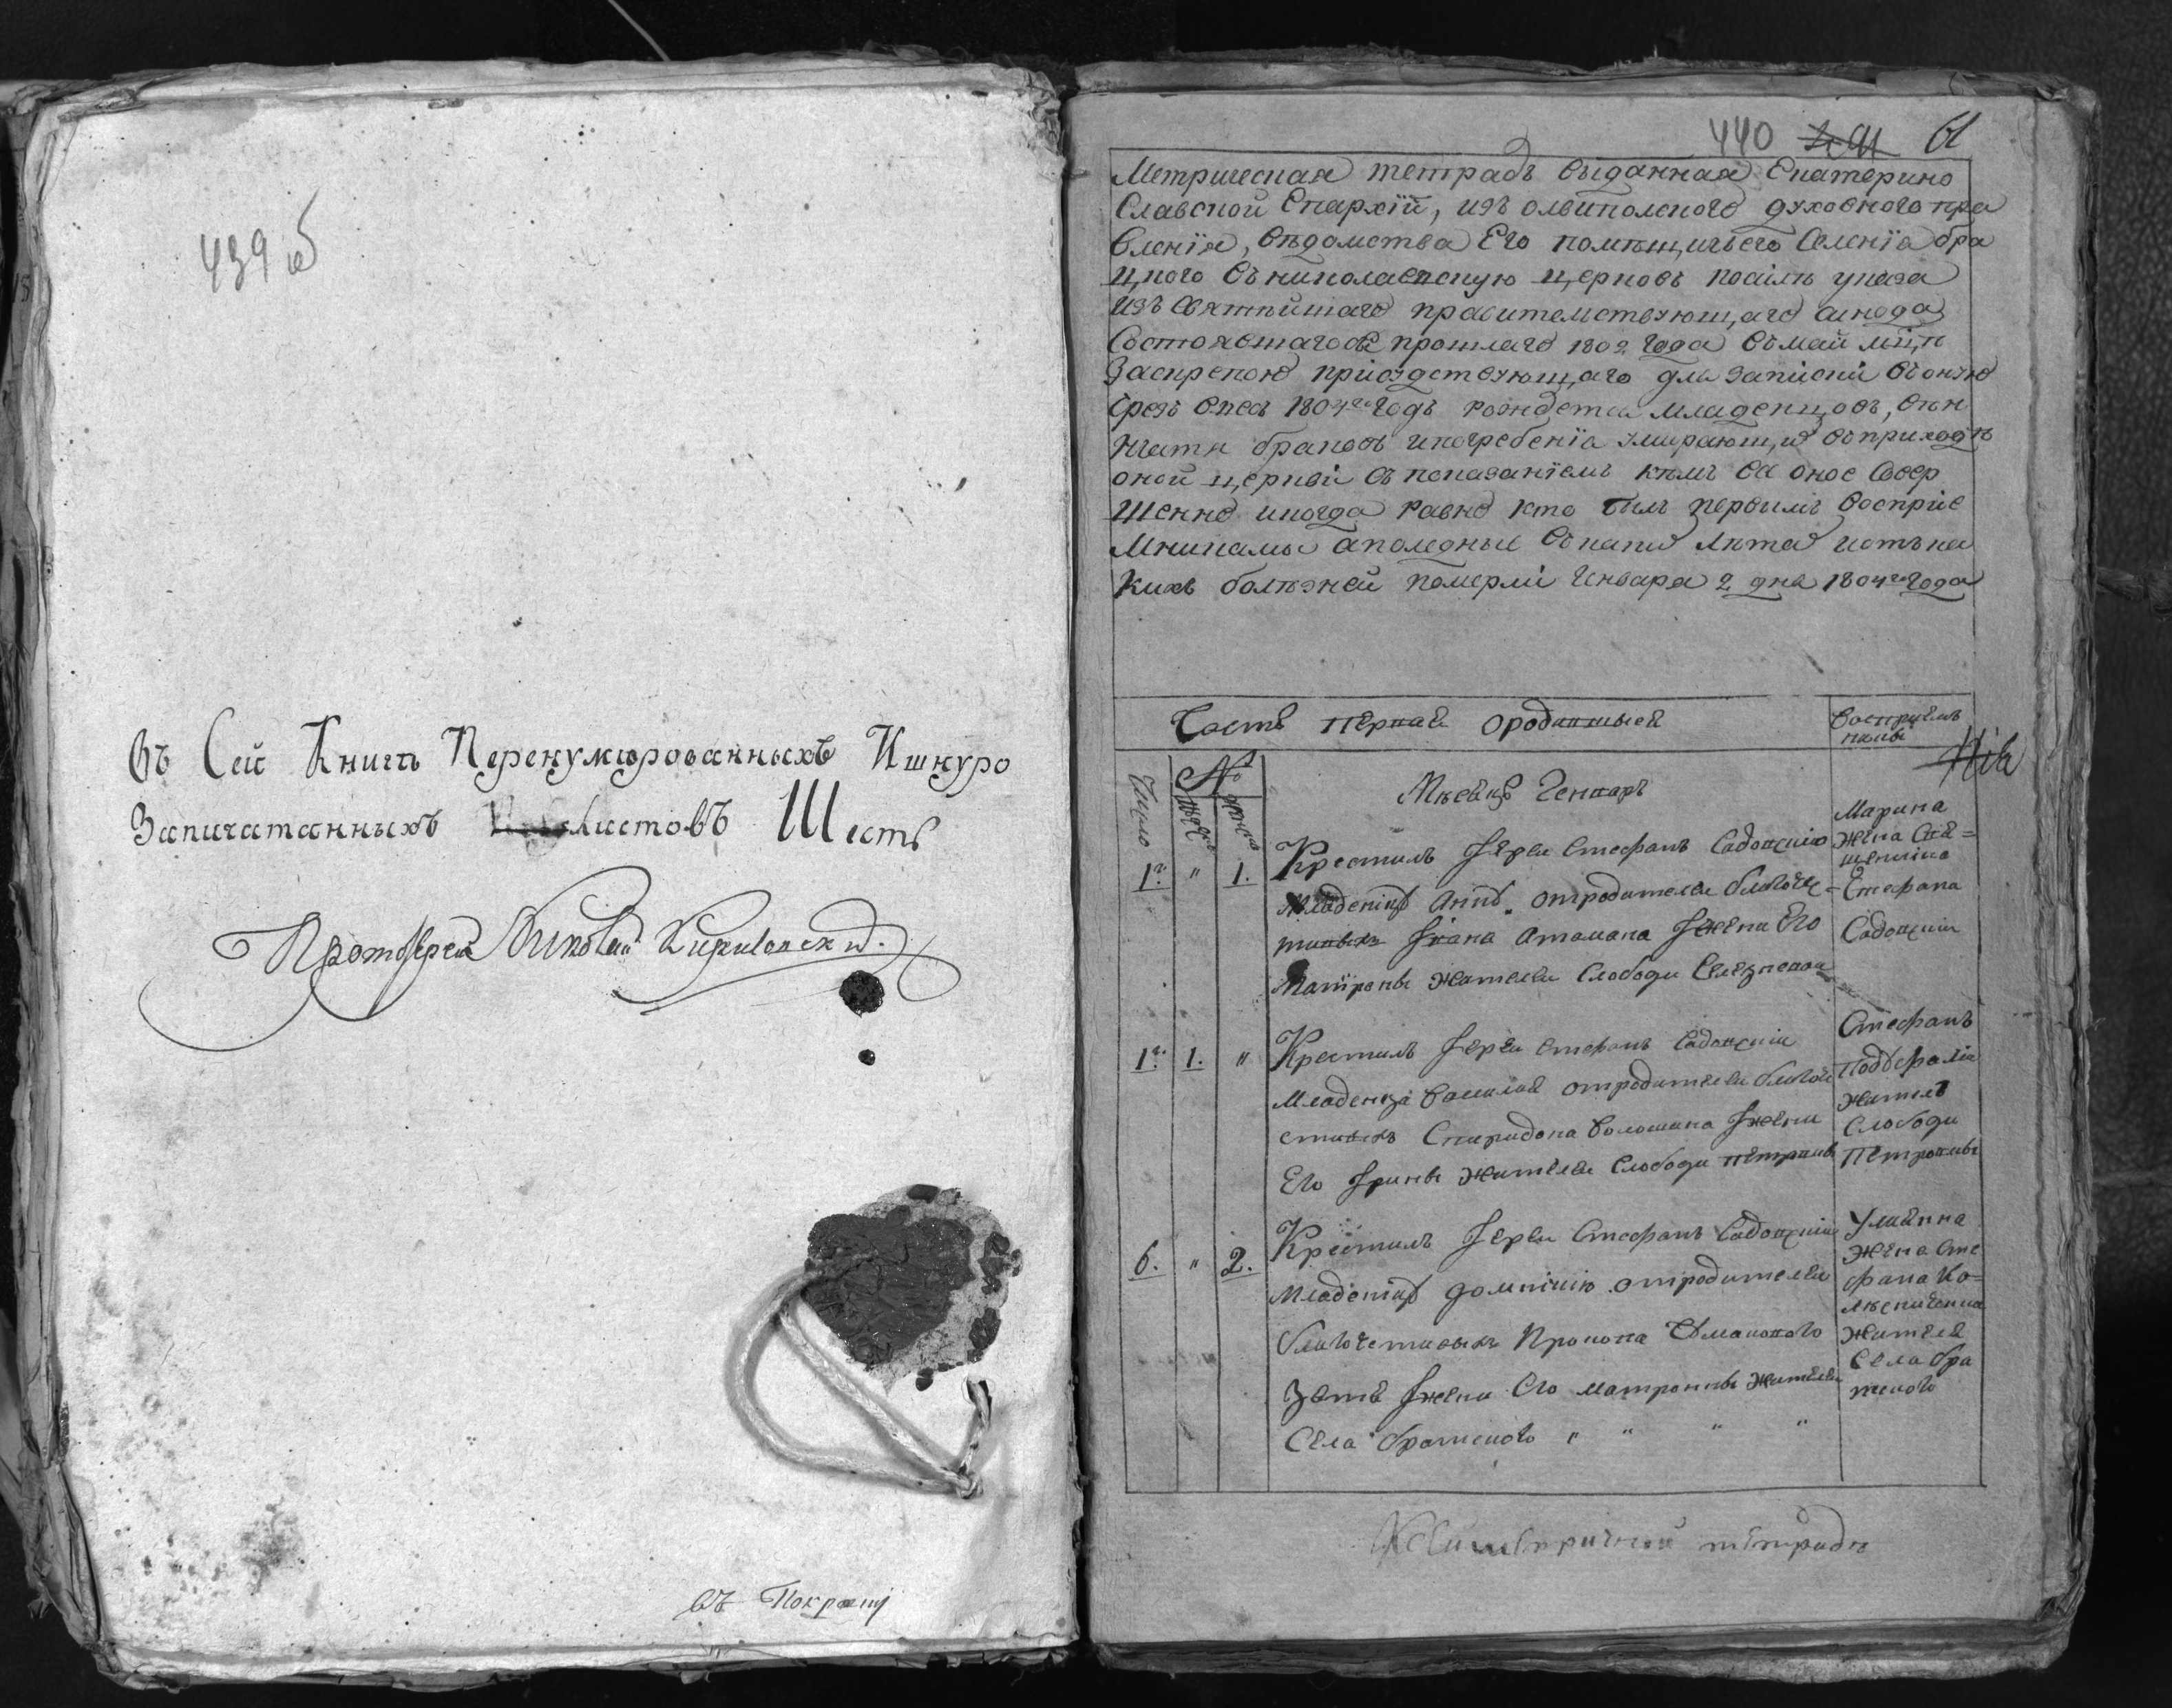 439 б
Въ Сей Книгѣ Перенумированныхъ Ишнуро
Запичатанныхъ Листовъ Шесть
Протоіерей Николай
въ
440 61
Метрическая тетрадь выданная Екатерино
Славской Епархіи, изъ олвиополского духовного пра
вленія, вѣдомства Его помѣщичьего Селенія бра
цкого въ николаевскую церковь посилѣ указа
изъ Святѣйшаго правителствующаго синода
Состоявшагося прошлаго 1802 года въ май мцѣ
Заскрепою приздствующаго для записки въ оную
чрезъ весь 1804го годъ рождется младенцовъ, вѣн
чати браковъ ипогребенія умирающих въ приходѣ
оной церкви съ показаніемъ кѣмъ все оное Совер
шенно иногда равно кто былъ первимъ восприе
мникамы аполедные въ какие лѣта иотъ ка
кихъ болѣзней померли Генваря 2 дня 1804го года
Часть первая ородившыся
Восприем
никы
Число
№
Мѣсяцъ Генваръ
1го. " 1. Крестилъ Іерей Стефанъ Садовскій
Младеницу Анну отродителей благоче
тивыхъ Ивана Атамана Ижени Его
Матроны жителей Слободи
Марина
жена Свя=
щеника
Стефана
Садовскій
1го. 1. " Крестилъ Іерей Стефанъ Садовскій
Младенца Василія отродителей благоче
стивыхъ Спиридона Волошина Ижени
Его Ірины жителей Слободи Петровки
Стефанъ
житель
Слободи
Петровки
6. " 2. Крестилъ Іерей Стефанъ Садовскій
Младеницу Домникию отродителей
благочетивыхъ Прокопа
Зятя Ижени Его матроны жителей
Села братского " " " "
Улияна
жена Сте
фана Ко=
лѣсниченка
жителя
Села бра
тского
тетрадѣ